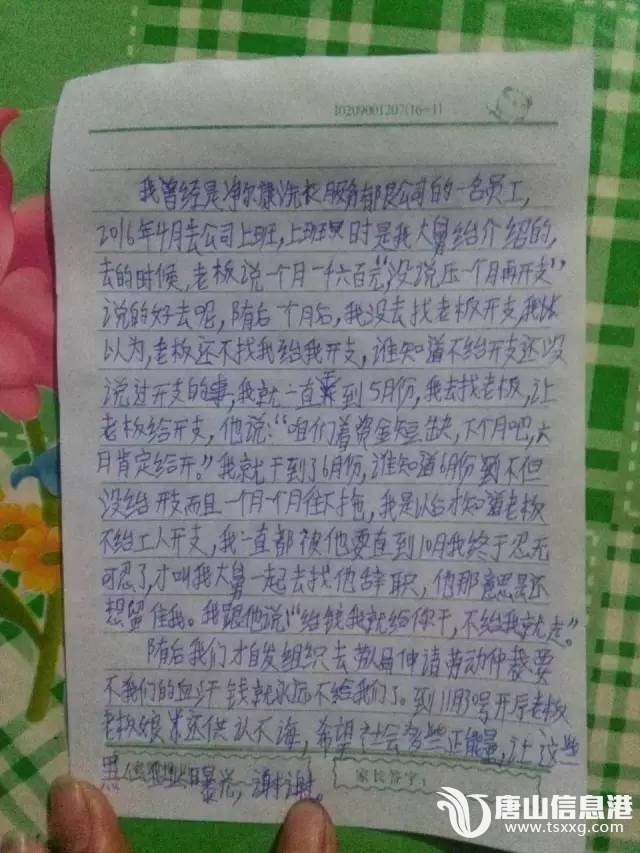 10209001207(16-1)
我曾经是净尔康洗衣服务有限公司的一名员工,
2016年4月去公司上班,上班时是我大舅给介绍的,
去的时候,老板说一个月一千六百元,"没说压一个月再开支"
说的好去呢,随后一个月后,我没去找老板开支,我
以为,老板还不找我给我开支,谁知道不给开支还没
说过开支的事,我就一直到5月份,我去找老板,让
老板给开支,他说:"咱们着资金短缺,下个月吧,六
月肯定给开。"我就干到了6月份,谁知道6月份到不但
没给开支而且一个月一个月往下拖,我是以后才知道老板
不给工人开支,我一直都被他耍直到10月我终于忍无
可忍了,才叫我大舅一起去找他辞职,他那意思是还
想留住我。我跟他说:"给钱我就给你干,不给我就走。"
随后我们才自发组织去劳动局申请劳动仲裁要
不我们的血汗钱就永远不给我们了。到11月30号开庭老板
老板娘还供认不诲,希望社会多些正能量,让这些
黑企业曝光,谢谢。
家长签字:
唐山信息港
www.tsxxg.com